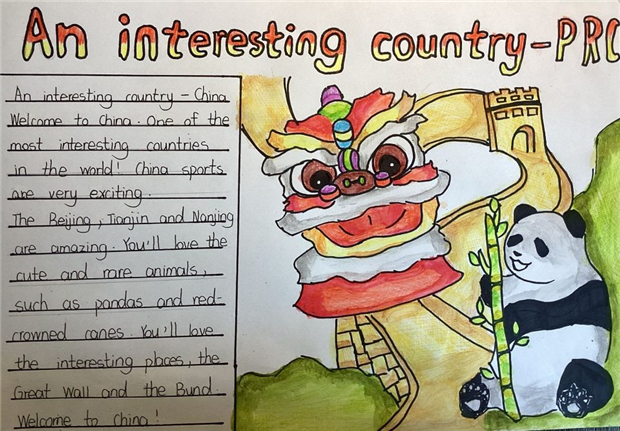 An interesting country-PRC
An interesting country - China
Welcome to China. One of the
most interesting countries
in the world! China sports
are very exciting.
The Beijing, Tianjin and Nanjing
are amazing. You'll love the
cute and rare animals,
such as pandas and red-
crowned canes. You'll love
the interesting places, the
Great Wall and the Bund.
Welcome to China!